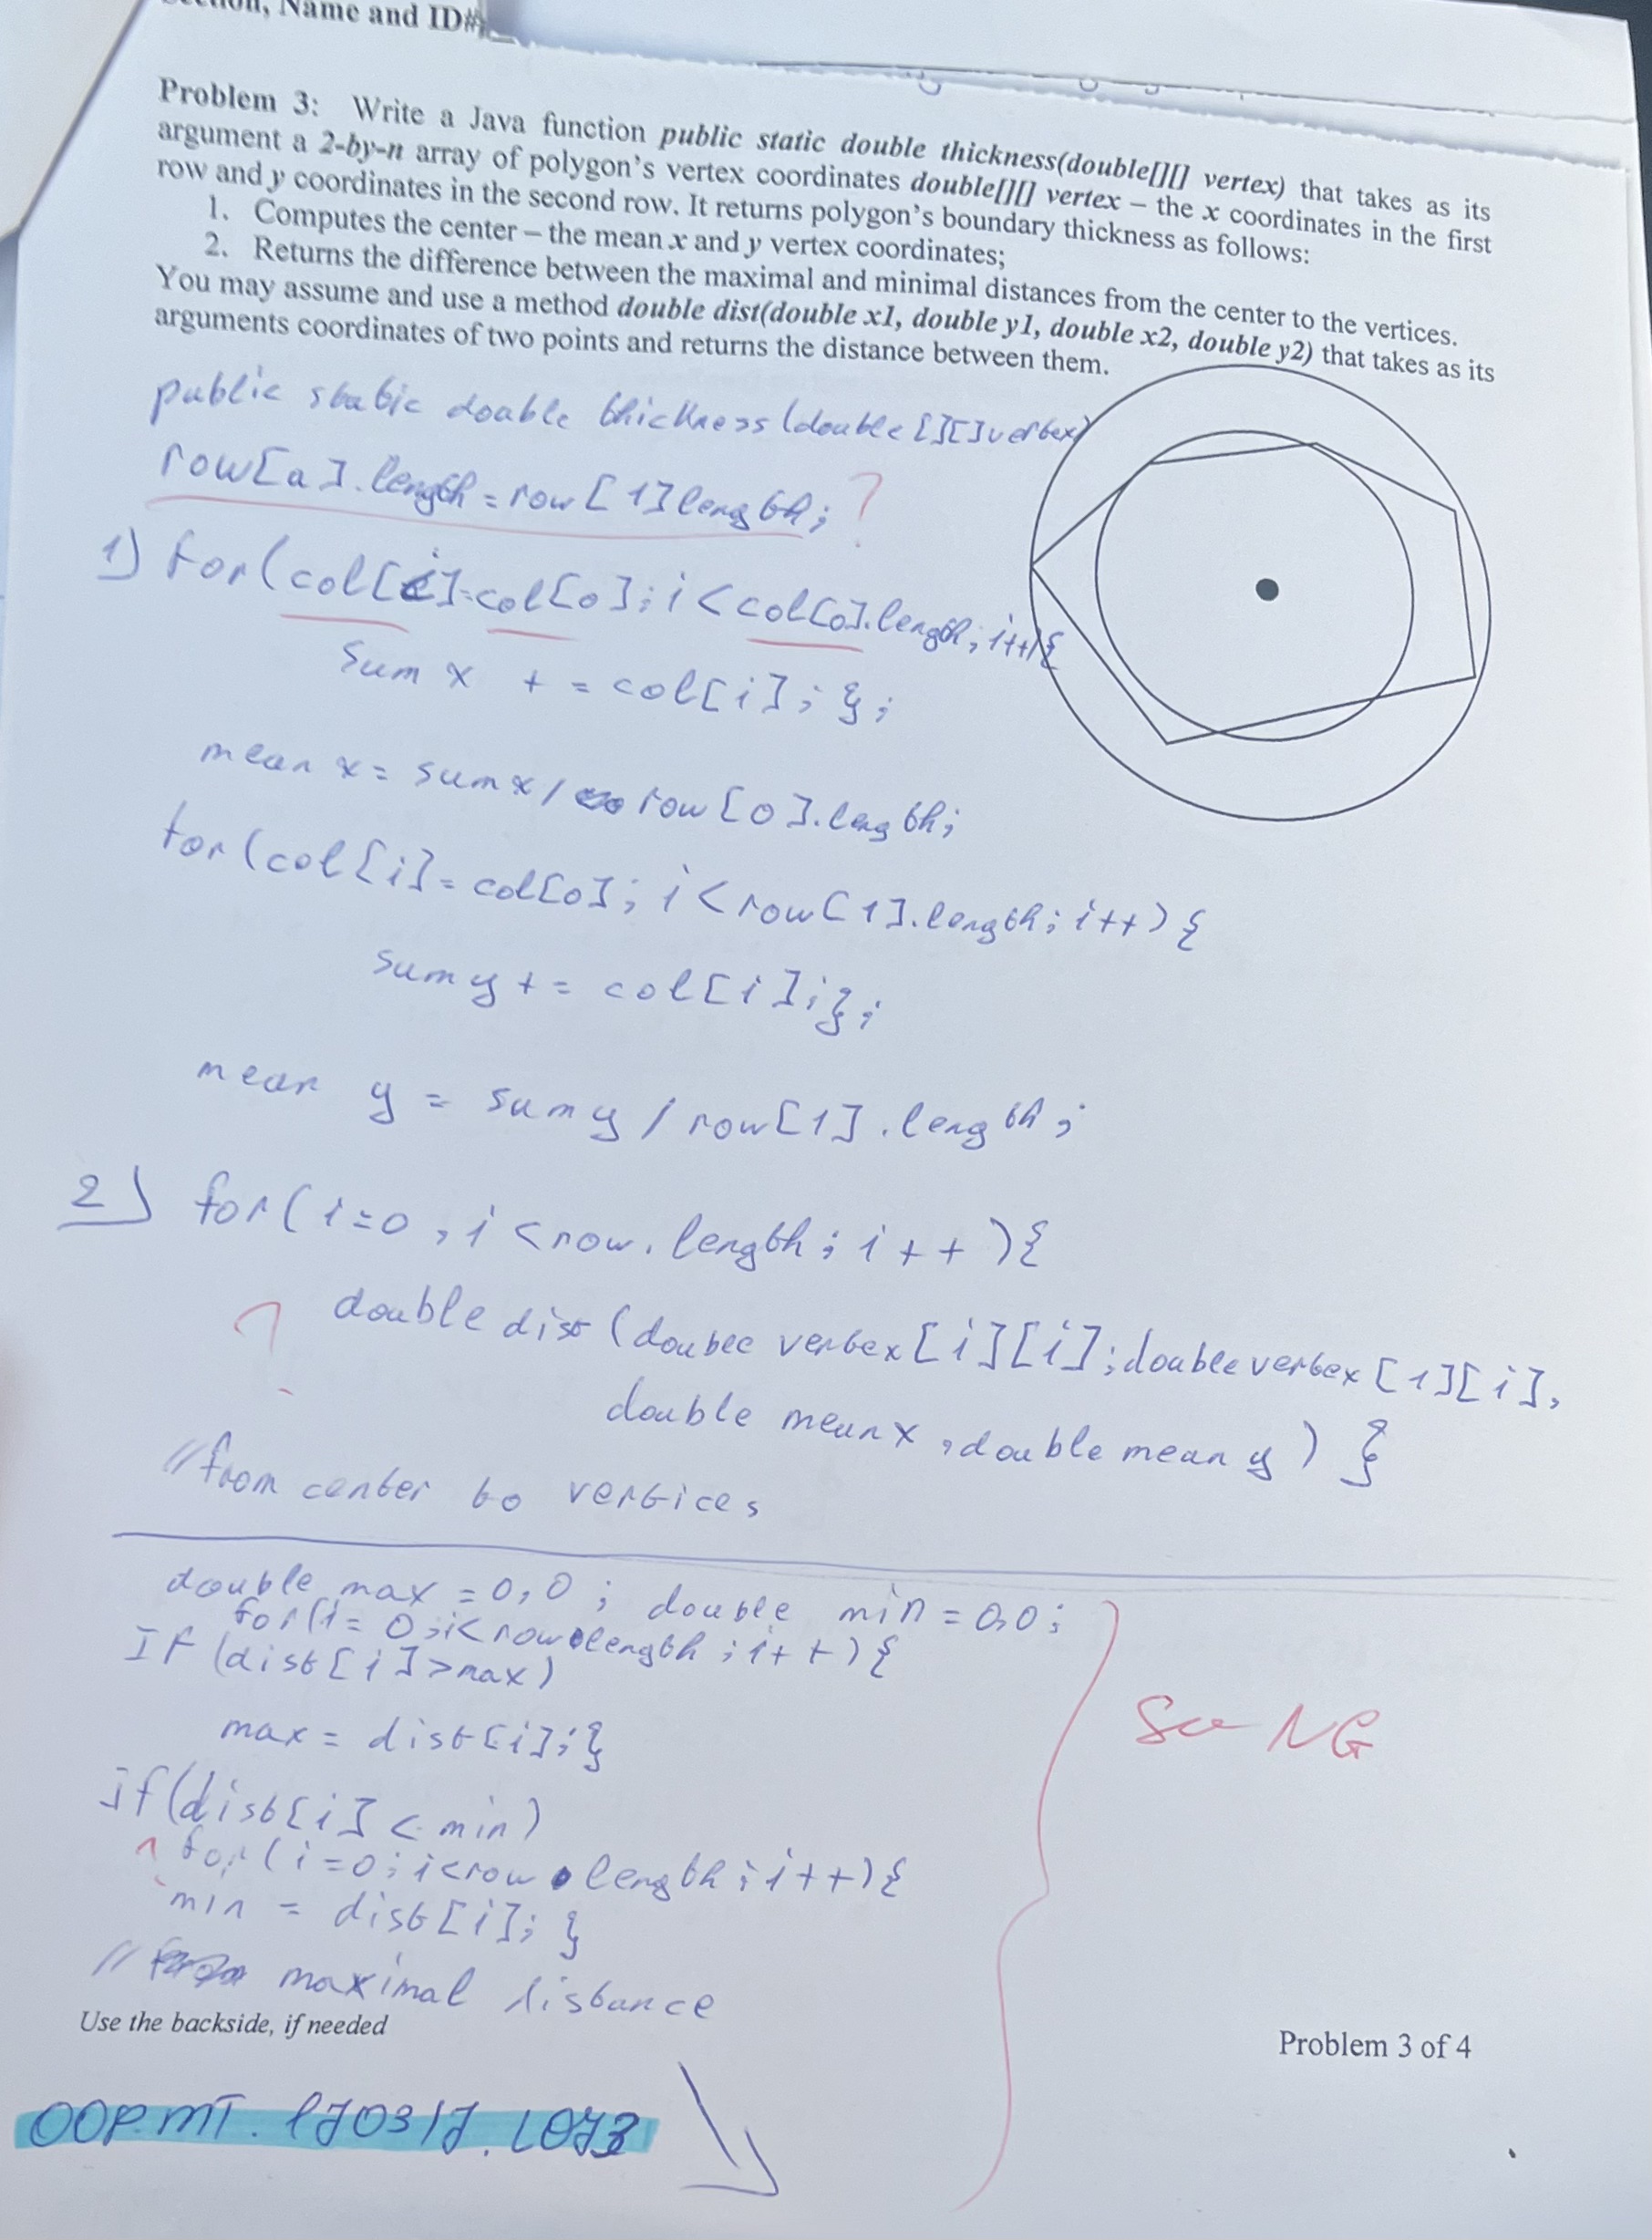 Section, Name and ID#:
Problem 3: Write a Java function public static double thickness(double[][] vertex) that takes as its
argument a 2-by-n array of polygon's vertex coordinates double[][] vertex – the x coordinates in the first
row and y coordinates in the second row. It returns polygon's boundary thickness as follows:
1. Computes the center – the mean x and y vertex coordinates;
2. Returns the difference between the maximal and minimal distances from the center to the vertices.
You may assume and use a method double dist(double x1, double y1, double x2, double y2) that takes as its
arguments coordinates of two points and returns the distance between them.
public static double thickness (double [][] vertex)
row[a].length = row[1]length; ?
1) for(col[i]=col[0]; i < col[0].length; i++){
sum x += col[i]; };
mean x = sum x / row [0].length;
for (col[i] = col[0]; i < row[1].length; i++) {
sum y += col[i]; };
mean y = sum y / row[1].length;
2) for (i=0, i < row. length; i++){
? double dist (double vertex [i][i]; double vertex [1][i],
double mean x, double mean y) }
// from center to vertices
double max = 0,0; double min = 0,0;
for(i= 0; i< row.length; i++){
If (dist[i] > max)
max = dist[i]; }
See NG
if(dist[i] < min)
for (i=0; i<row.length; i++){
min = dist[i]; }
// maximal distance
Use the backside, if needed
Problem 3 of 4